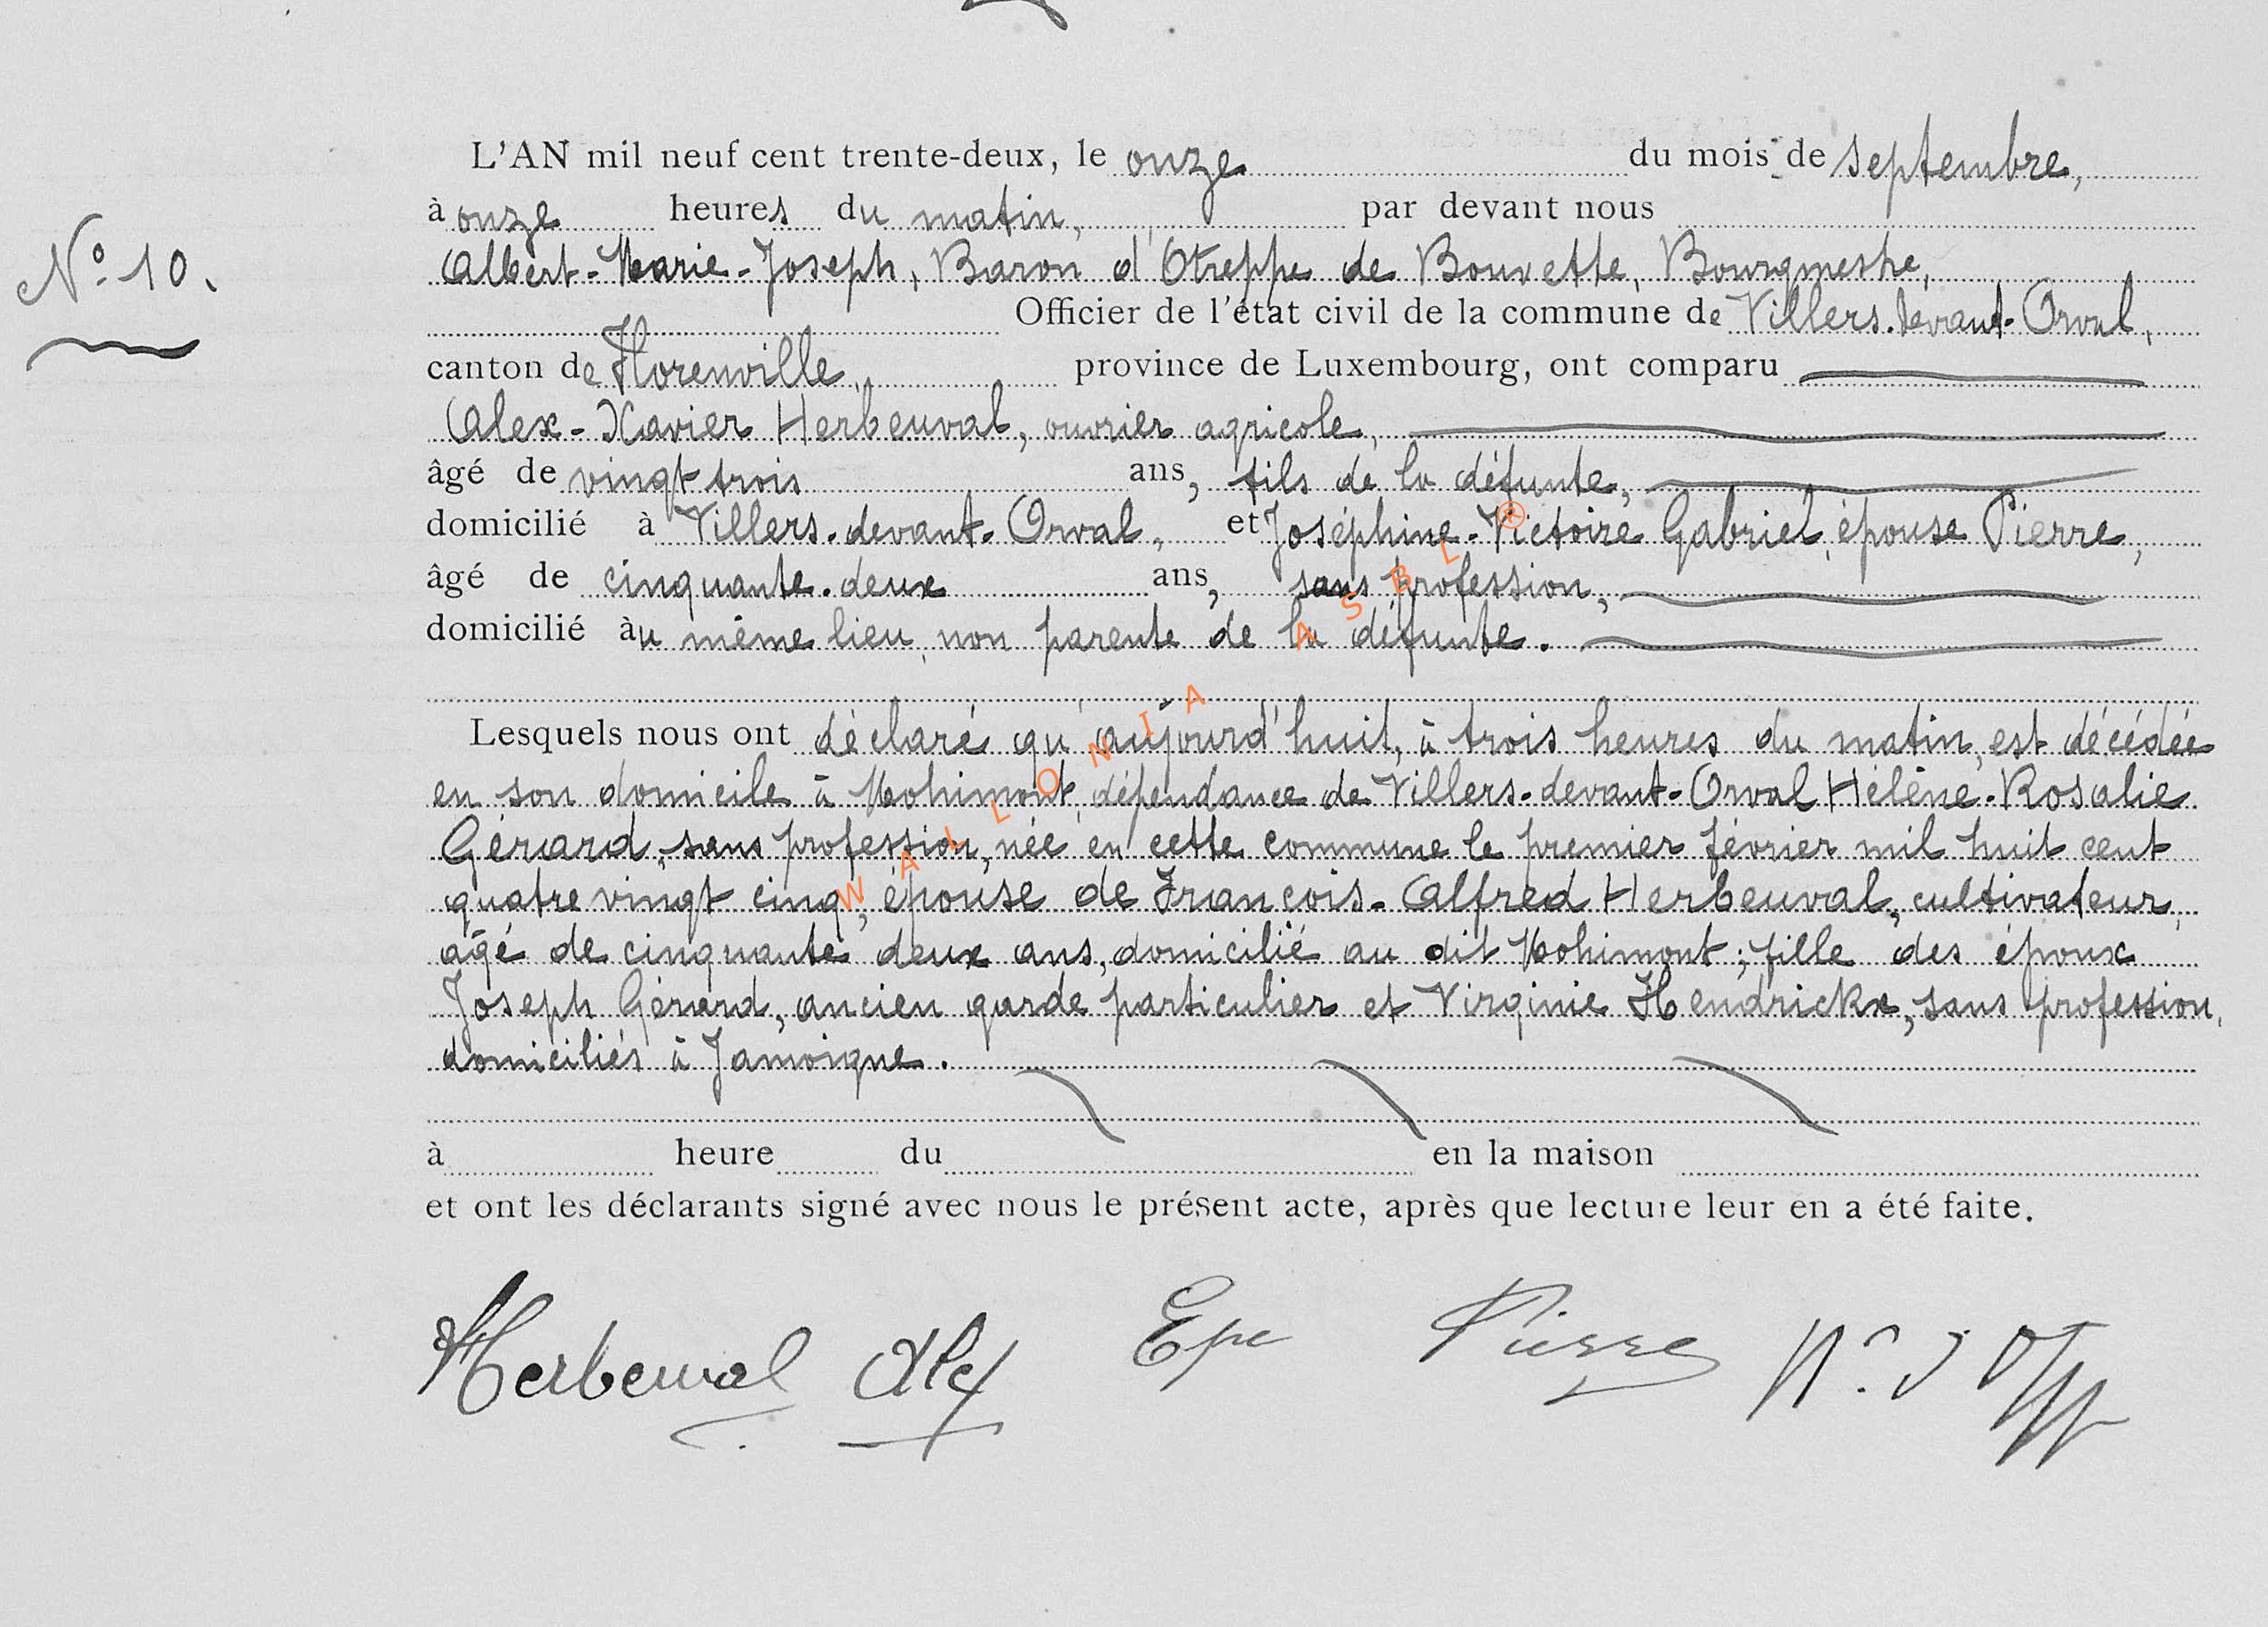 L'AN mil neuf cent trente-deux, le onze du mois de septembre,
à onze heures du matin, par devant nous
N° 10.
Albert-Marie-Joseph, Baron d'Otreppe de Bouvette, Bourgmestre,
Officier de l'état civil de la commune de Villers-devant-Orval,
canton de Florenville, province de Luxembourg, ont comparu
Alex-Xavier Herbeuval, ouvrier agricole,
âgé de vingt trois ans, fils de la défunte,
domicilié à Villers-devant-Orval, et Joséphine-Victoire Gabriel, épouse Pierre,
âgé de cinquante-deux ans, sans profession,
domicilié au même lieu, non parente de la défunte.
Lesquels nous ont déclaré qu'aujourd'huit, à trois heures du matin, est décédée
en son domicile à Mohimont, dépendance de Villers-devant-Orval Hélène-Rosalie
Gérard, sans profession, née en cette commune le premier février mil huit cent
quatre vingt cinq, épouse de François-Alfred Herbeuval, cultivateur,
âgé de cinquante deux ans, domicilié au dit Mohimont; fille des époux
Joseph Gérard, ancien garde particulier et Virginie Hendrickx, sans profession,
domiciliés à Jamoigne.
à heure du en la maison
et ont les déclarants signé avec nous le présent acte, après que lecture leur en a été faite.
Herbeuval Alex Epe Pierre
WALLONIA ASBL ®